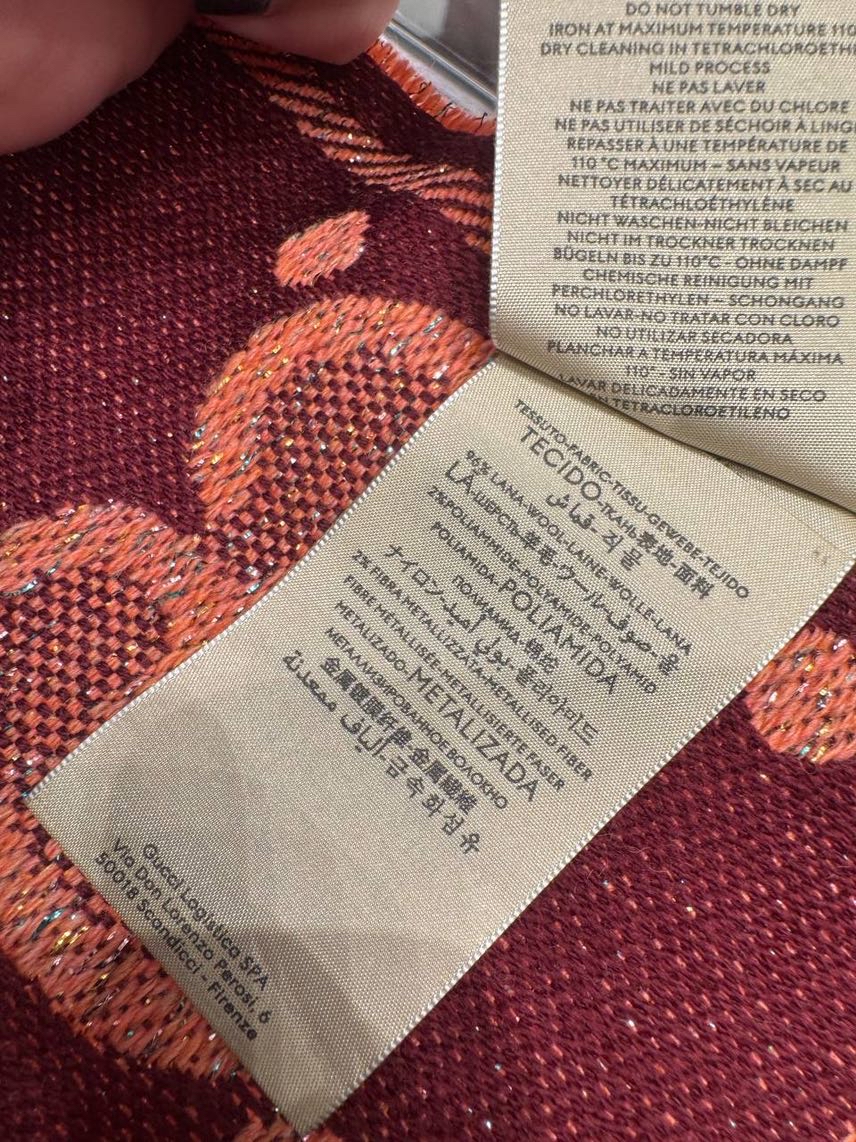 DO NOT TUMBLE DRY
IRON AT MAXIMUM TEMPERATURE 110
DRY CLEANING IN TETRACHLOROETH
MILD PROCESS
NE PAS LAVER
NE PAS TRAITER AVEC DU CHLORE
NE PAS UTILISER DE SÉCHOIR À LING
REPASSER À UNE TEMPÉRATURE DE
110 °C MAXIMUM – SANS VAPEUR
NETTOYER DÉLICATEMENT À SEC AU
TÉTRACHLOÉTHYLÈNE
NICHT WASCHEN-NICHT BLEICHEN
NICHT IM TROCKNER TROCKNEN
BÜGELN BIS ZU 110°C - OHNE DAMPF
CHEMISCHE REINIGUNG MIT
PERCHLORETHYLEN – SCHONGANG
NO LAVAR-NO TRATAR CON CLORO
NO UTILIZAR SECADORA
PLANCHAR A TEMPERATURA MÁXIMA
110° - SIN VAPOR
LAVAR DELICADAMENTE EN SECO
TETRACLOROETILENO
TESSUTO-FABRIC-TISSU-GEWEBE-TEJIDO
TECIDO-ТКАНЬ-表地-面料
قماش-직물
96% LANA-WOOL-LAINE-WOLLE-LANA
LÃ-ШЕРСТЬ-羊毛-ウール-صوف-울
2%POLIAMMIDE-POLYAMIDE-POLYAMID
POLIAMIDA-POLIAMIDA
ПОЛИАМИД-锦纶
ナイロン-بولي أميد-폴리아미드
2% FIBRA METALLIZZATA-METALLISED FIBER
FIBRE MÉTALLISÉE-METALLISIERTE FASER
METALIZADO-METALIZADA
МЕТАЛЛИЗИРОВАННОЕ ВОЛОКНО
金属镀膜纤维-金属繊維
ألياف ممعدنة-금속화섬유
Gucci Logistica SPA
Via Don Lorenzo Perosi, 6
50018 Scandicci - Firenze